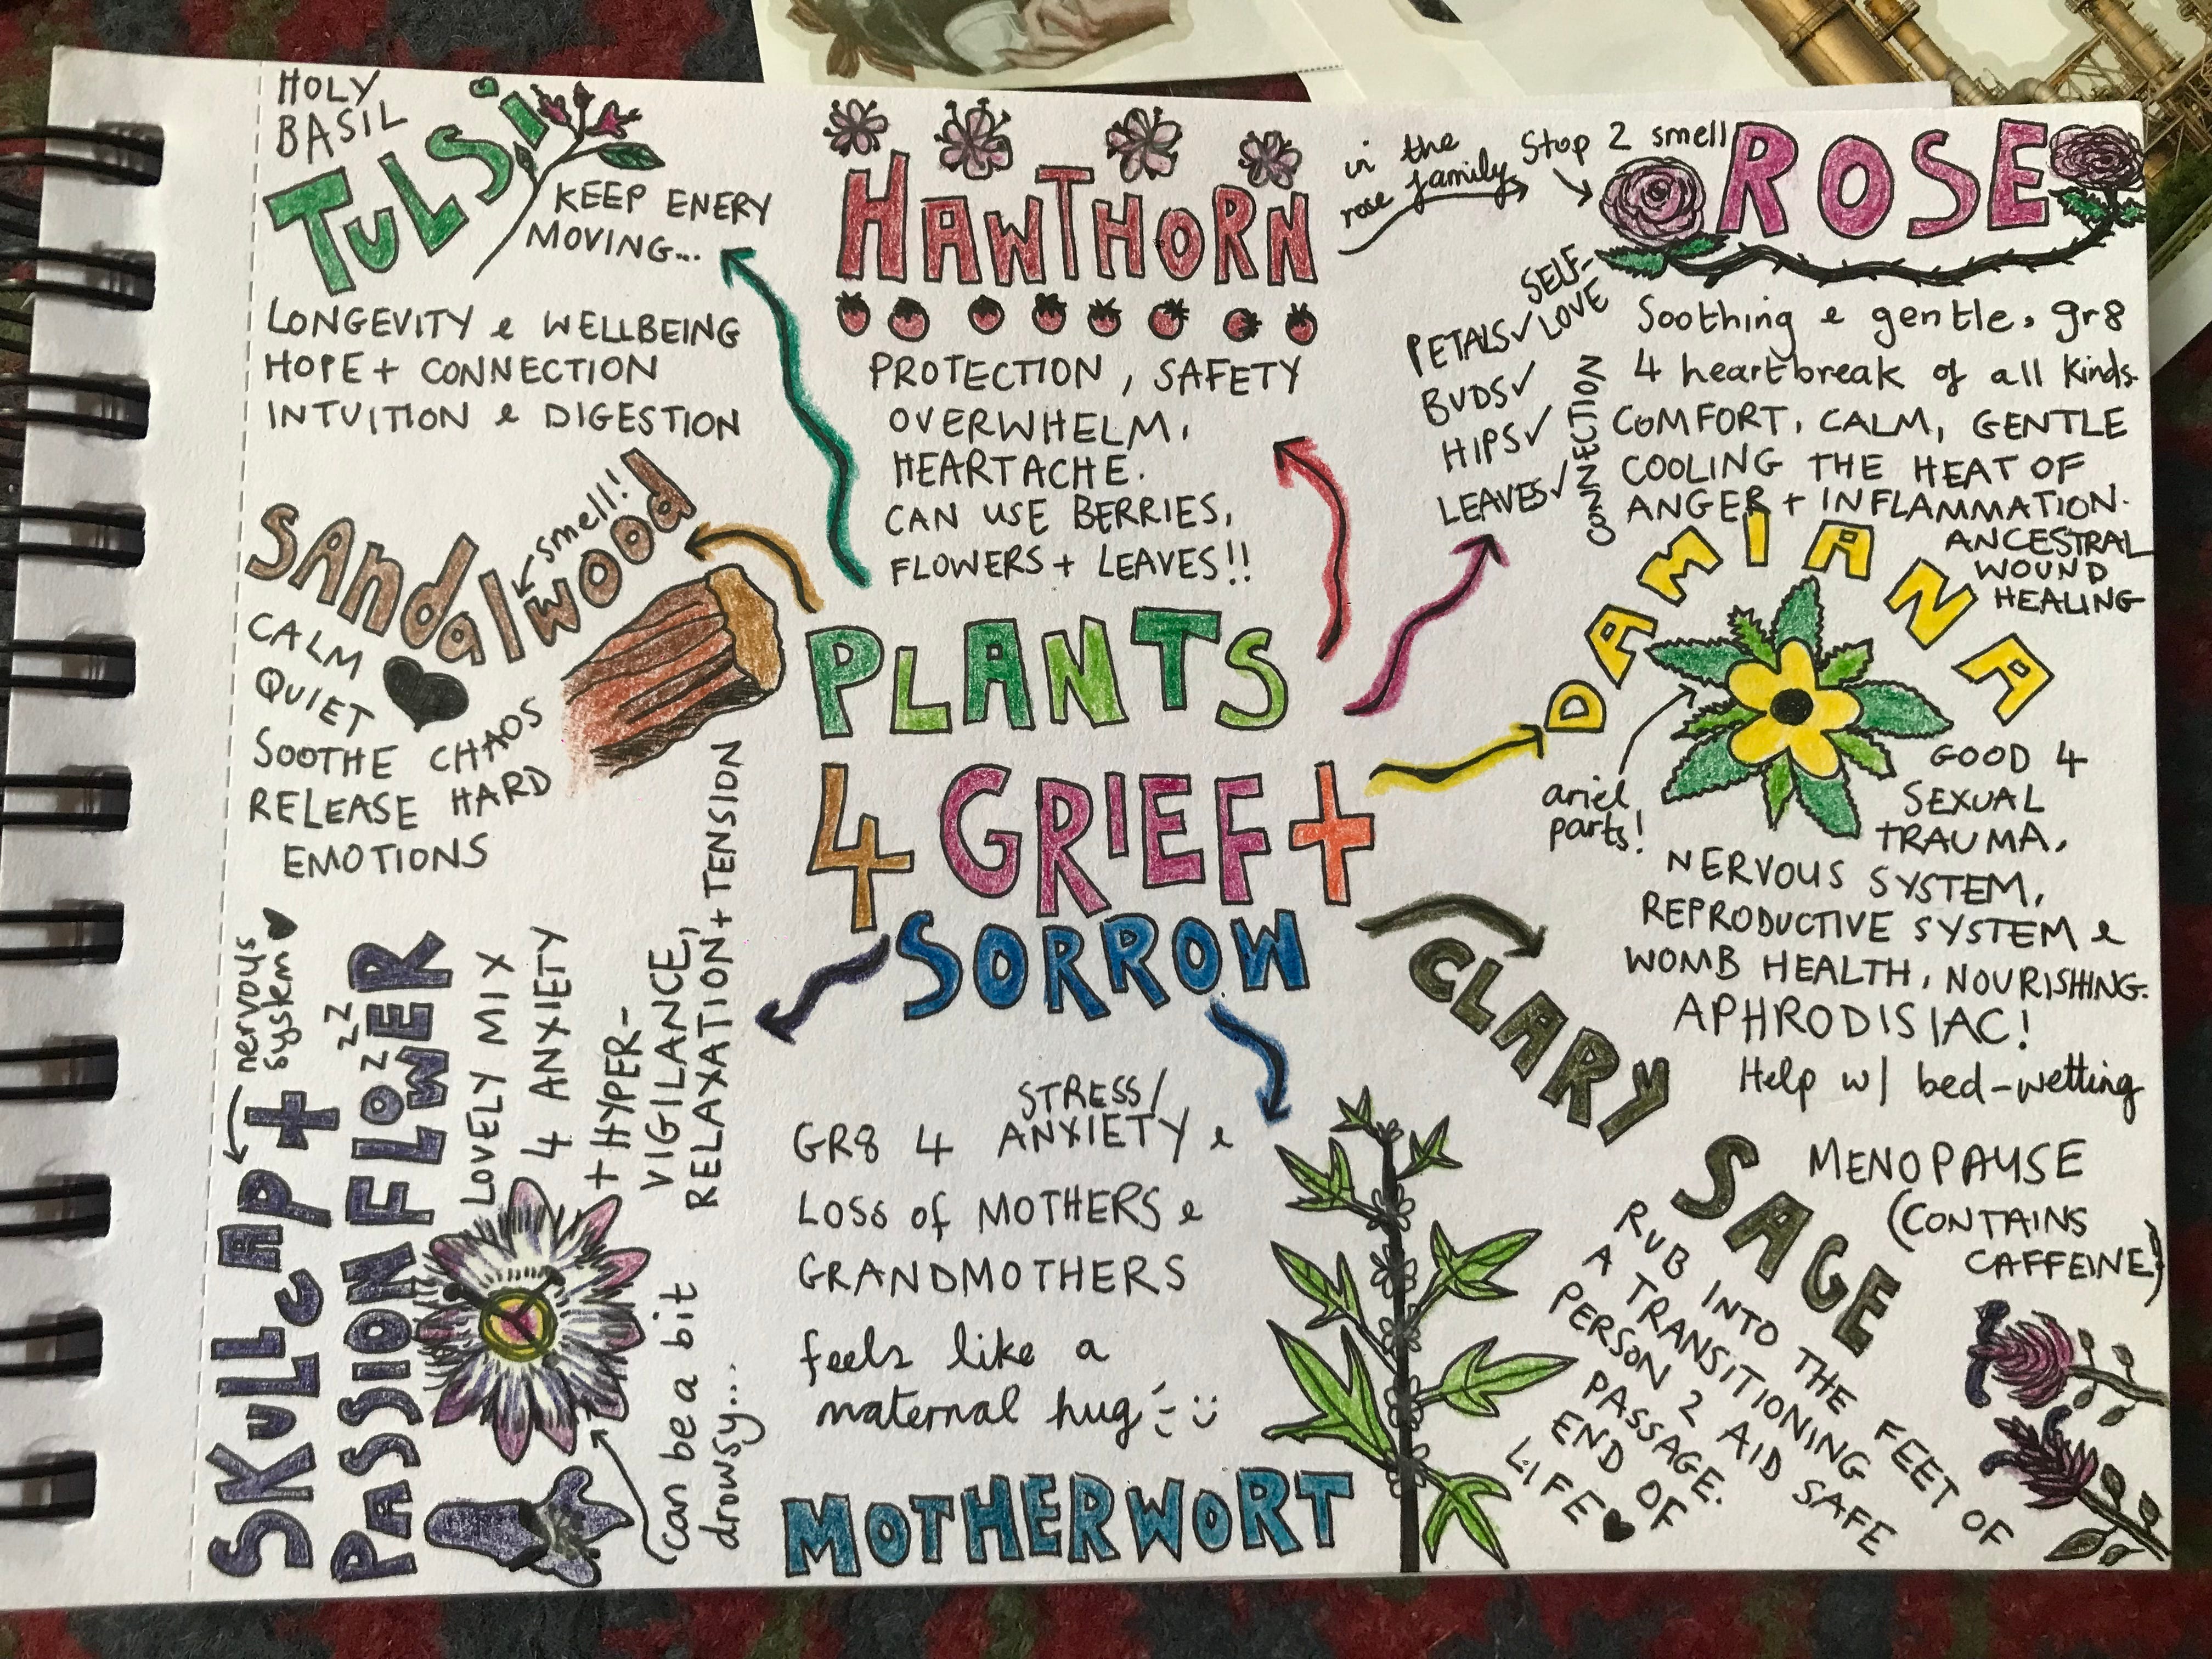 HOLY
BASIL
TULSI
KEEP ENERY
MOVING...
LONGEVITY & WELLBEING
HOPE + CONNECTION
INTUITION & DIGESTION
HAWTHORN
PROTECTION, SAFETY
OVERWHELM,
HEARTACHE.
CAN USE BERRIES,
FLOWERS + LEAVES!!
in the
rose family
Stop 2 smell
ROSE
SELF-
LOVE
PETALS✓
BUDS✓
HIPS✓
LEAVES✓
CONNECTION
Soothing & gentle, gr8
4 heartbreak of all kinds.
COMFORT, CALM, GENTLE
COOLING THE HEAT OF
ANGER + INFLAMMATION.
SANdalwood
smell!
CALM
QUIET
SOOTHE CHAOS
RELEASE HARD
EMOTIONS
PLANTS
4 GRIEF +
SORROW
DAMIANA
ANCESTRAL
WOUND
HEALING
ariel
parts!
GOOD 4
SEXUAL
TRAUMA,
NERVOUS SYSTEM,
REPRODUCTIVE SYSTEM &
WOMB HEALTH, NOURISHING.
APHRODISIAC!
Help w/ bed-wetting
SKULLCAP +
nervous
system ♥
PASSION FLOWER
zz
z
LOVELY MIX
4 ANXIETY
+ HYPER-
VIGILANCE,
RELAXATION + TENSION
can be a bit
drowsy....
STRESS/
GR8 4 ANXIETY &
LOSS of MOTHERS &
GRANDMOTHERS
feels like a
maternal hug
MOTHERWORT
CLARY SAGE
MENOPAUSE
(CONTAINS
CAFFEINE)
RUB INTO THE FEET OF
A TRANSITIONING
PERSON 2 AID SAFE
PASSAGE.
END OF
LIFE ♥